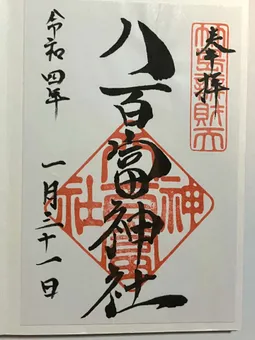 奉拝
八百富神社
令和四年
一月三十一日
神
社